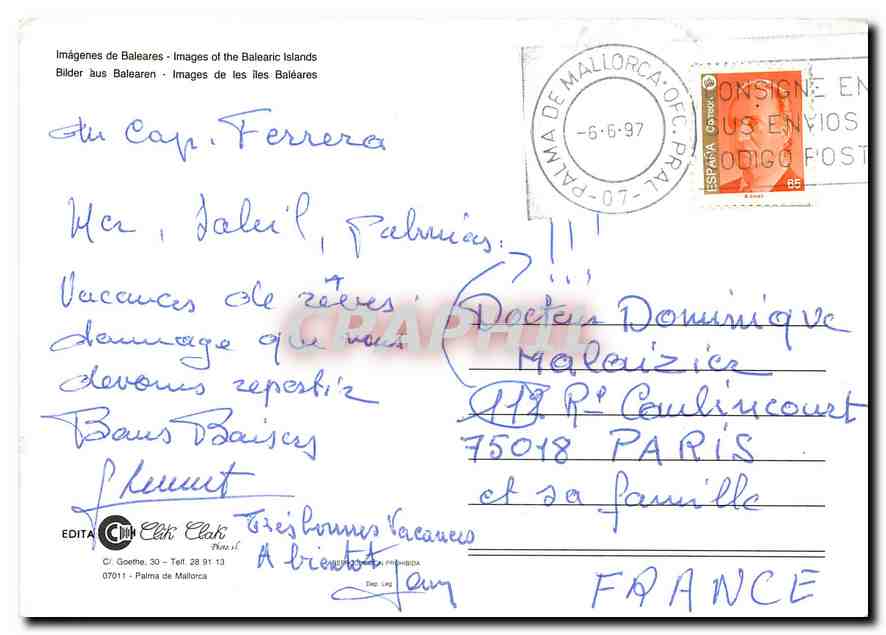 Imágenes de Baleares - Images of the Balearic Islands
Bilder aus Balearen - Images de les îles Baléares
PALMA DE MALLORCA·OFC. PRAL -07-
-6-6-97
CONSIGNE EN
SUS ENVIOS
CODIGO POST
ESPAÑA Correos
65
Au Cap. Ferrera
Mer, Soleil, Palmiers.
Vacances de rêves.
dommage que nous
devons repartir
Bons Baisers
Très bonnes Vacances
A bientôt
!!!
Docteur Dominique
Malaizier
112 R. Caulincourt
75018 PARIS
et sa famille
FRANCE
CRAPHIL
EDITA Clik Clak
C/ Goethe, 30 - Telf. 28 91 13
07011 - Palma de Mallorca
PROHIBIDA
Dep. Leg.